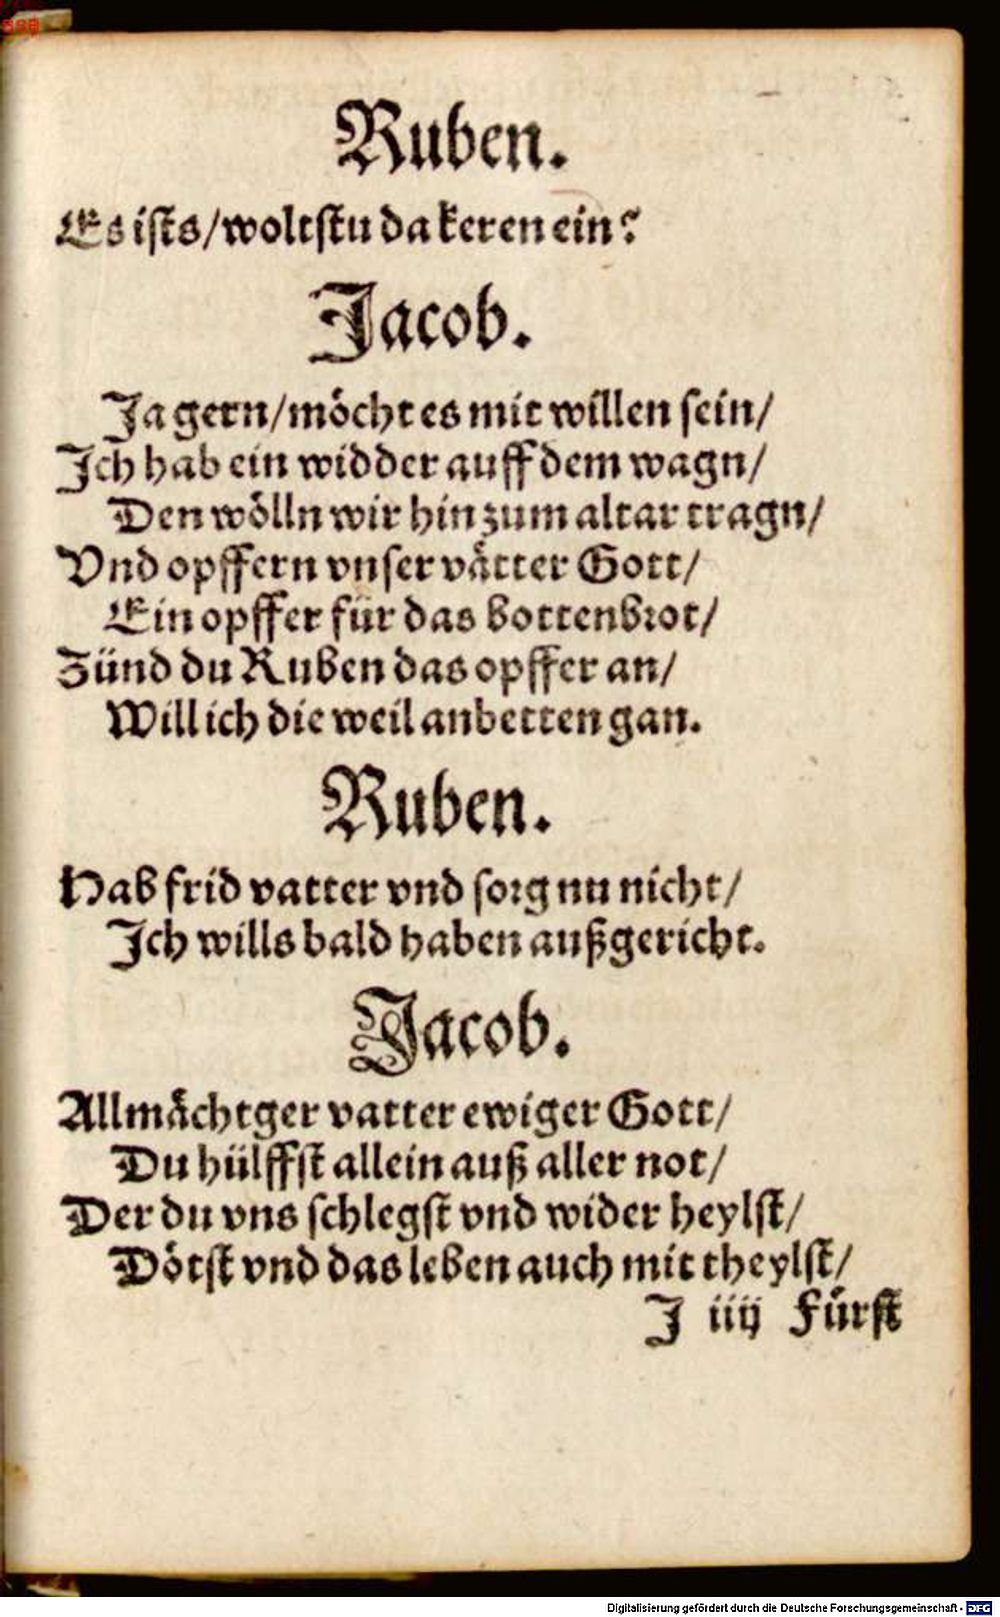 Ruben.
Es ists/woltstu da keren ein?
Jacob.
Ja gern/möcht es mit willen sein/
Jch hab ein widder auff dem wagn/
Den wölln wir hin zum altar tragn/
Vnd opffern vnser vätter Gott/
Ein opffer für das bottenbrot/
Zünd du Ruben das opffer an/
Will ich die weil anbetten gan.
Ruben.
Hab frid vatter vnd sorg nu nicht/
Jch wills bald haben außgericht.
Jacob.
Allmächtger vatter ewiger Gott/
Du hülffst allein auß aller not/
Der du vns schlegst vnd wider heylst/
Dötst vnd das leben auch mit theylst/
J iiij Fürst
Digitalisierung gefördert durch die Deutsche Forschungsgemeinschaft - DFG